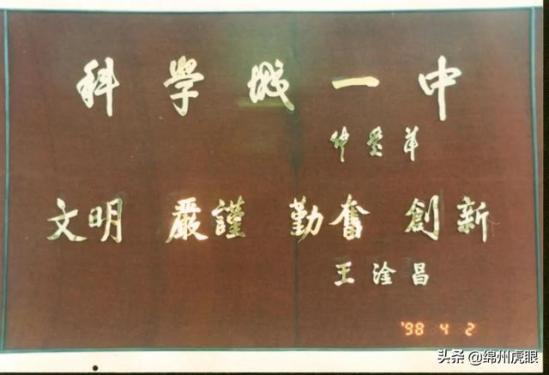 科學城一中
张爱萍
文明 嚴謹 勤奮 創新
王淦昌
'98 4 2
头条 @绵州虎眼